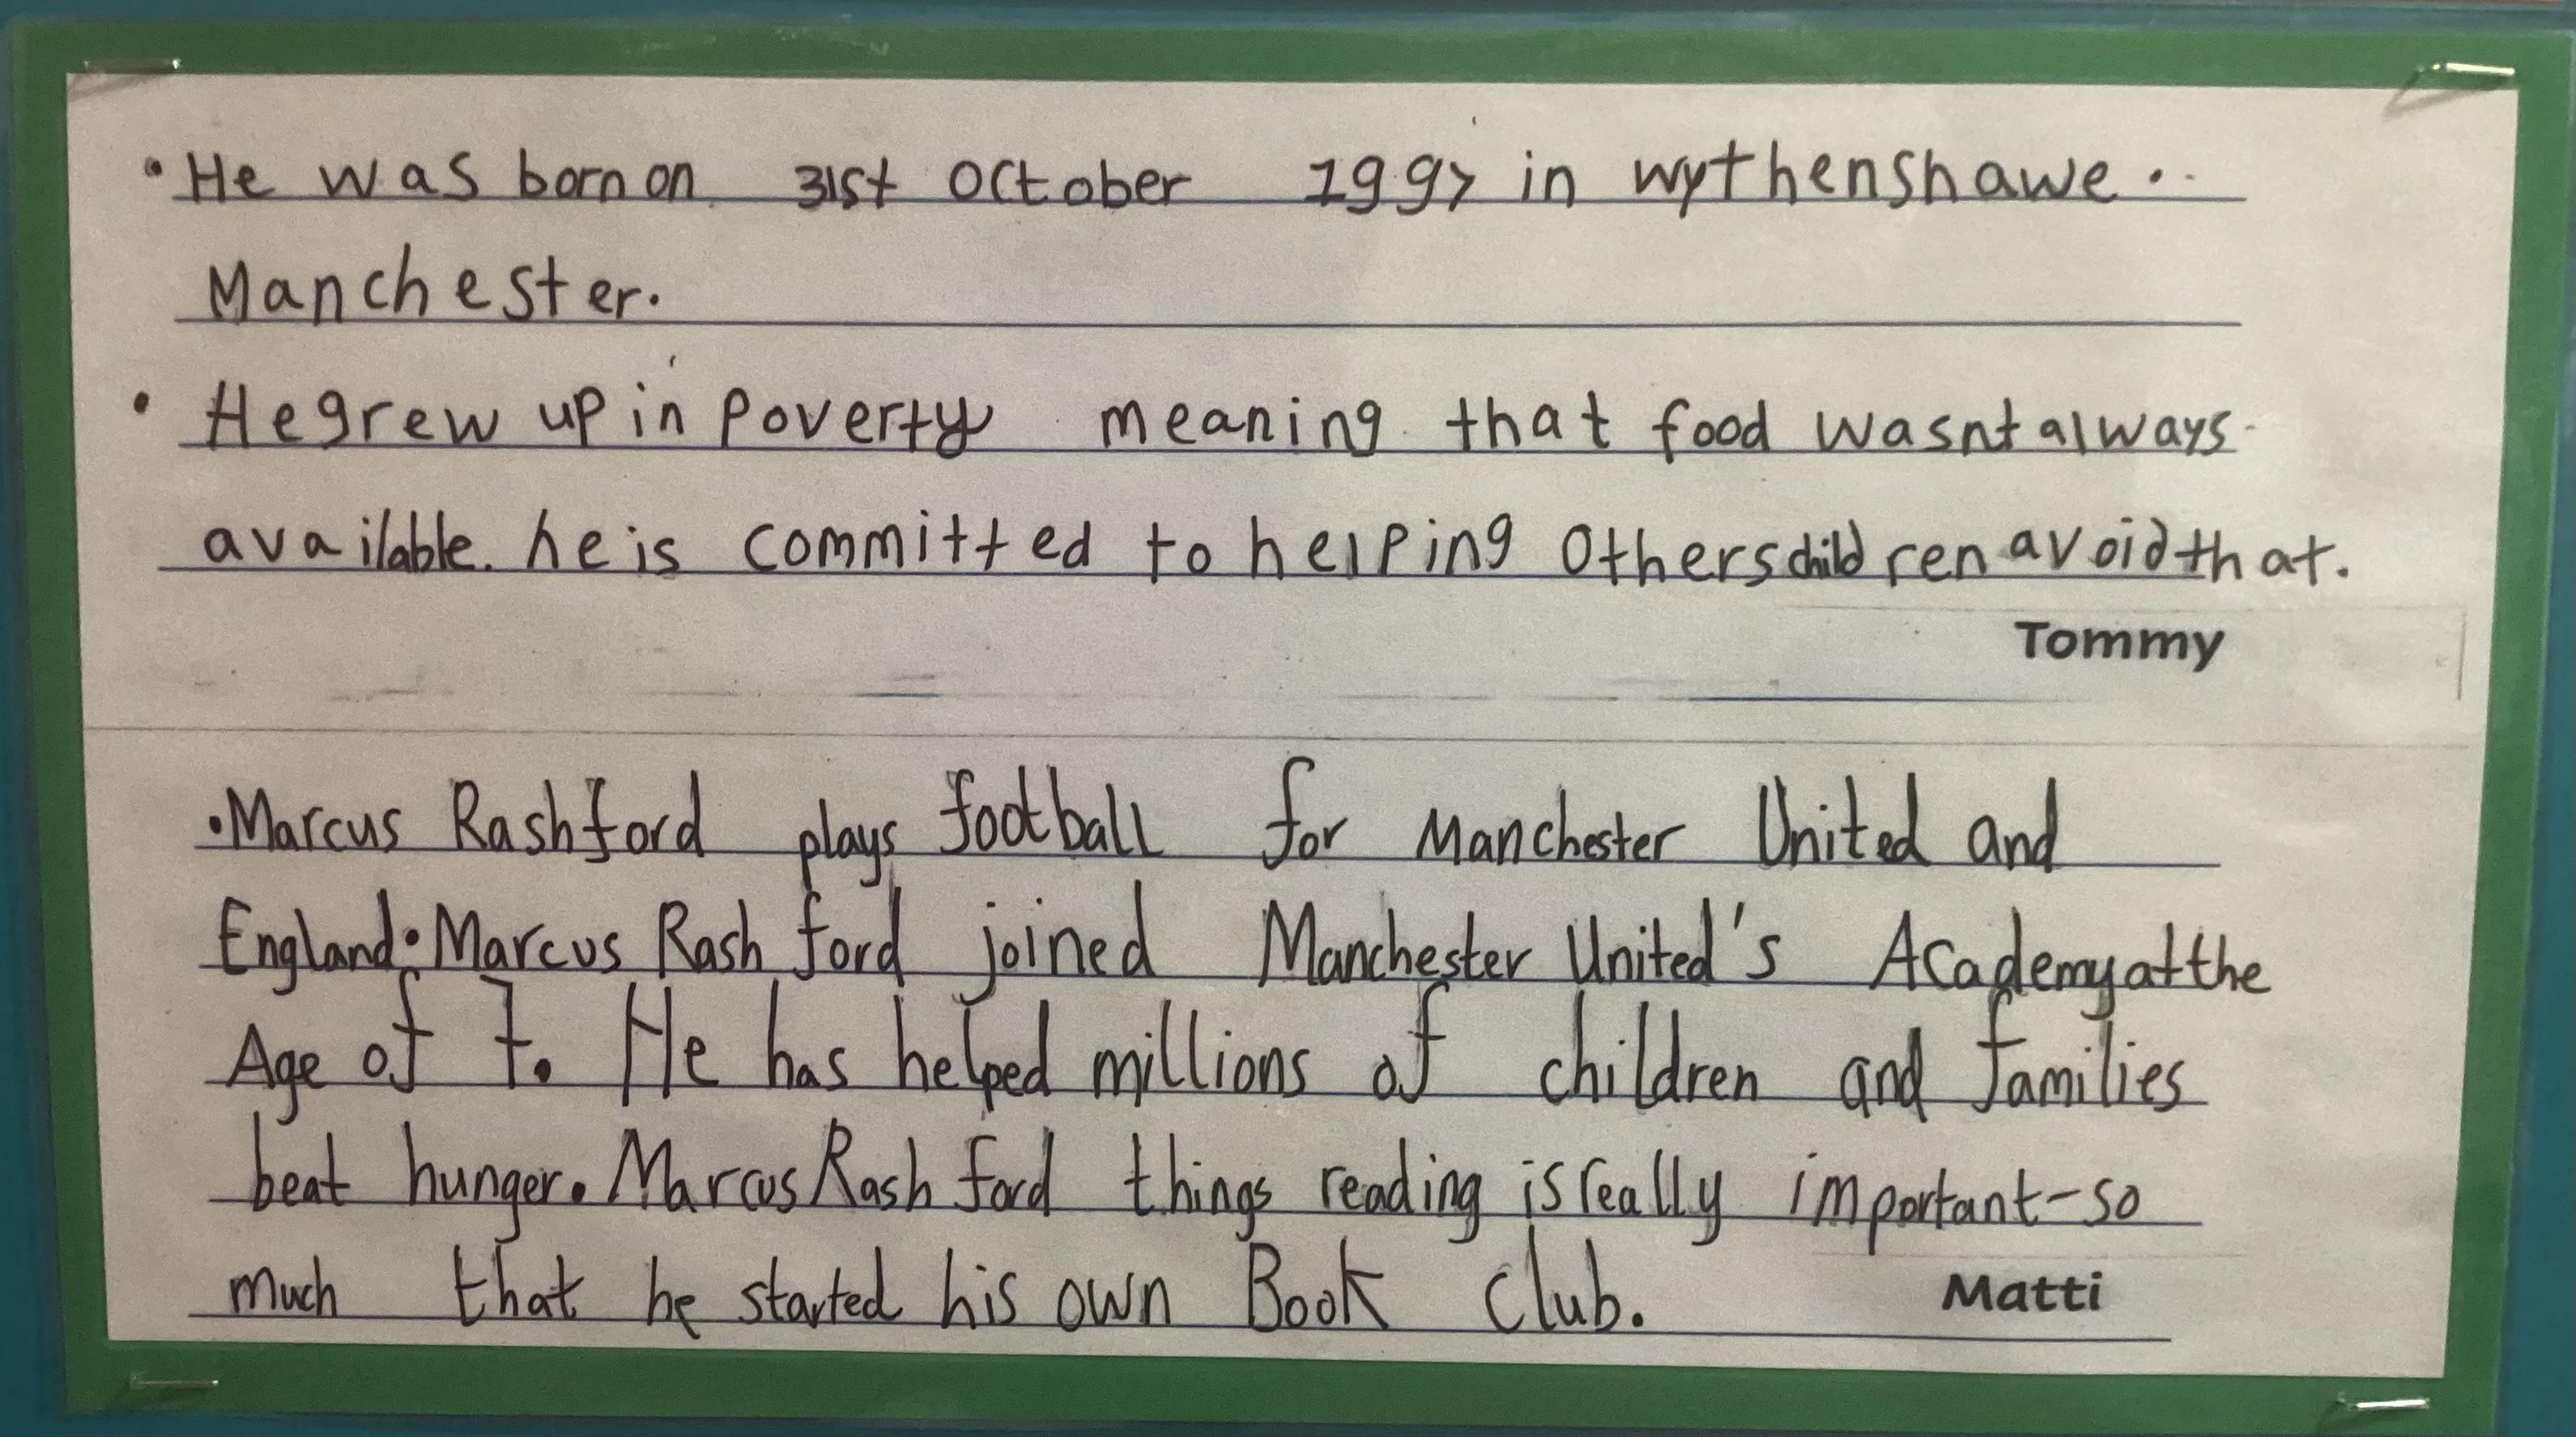 • He was born on 31st October 1997 in wythenshawe..
Manchester.
• He grew up in poverty meaning that food wasnt always
available. he is committed to helping others children avoid that.
Tommy
• Marcus Rashford plays football for Manchester United and
England. • Marcus Rashford joined Manchester United's Academy at the
Age of 7. He has helped millions of children and families
beat hunger. Marcus Rashford things reading is really important-so
much that he started his own Book club.
Matti